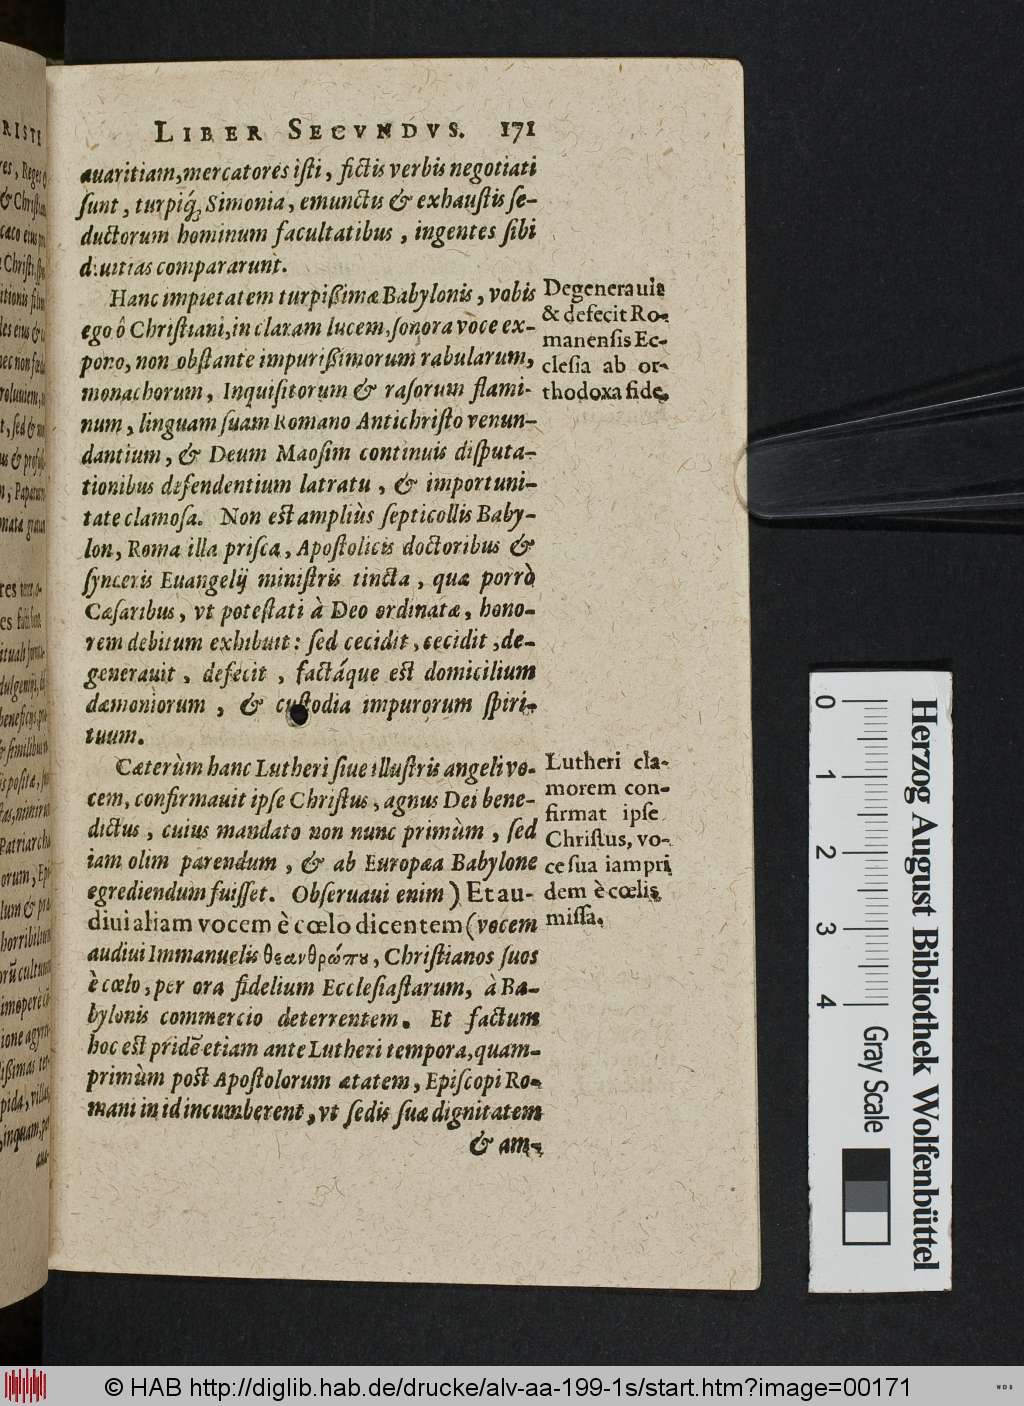 LIBER SECVNDVS. 171
auaritiam, mercatores iſti, fictis verbis negotiati
ſunt, turpiq́; Simonia, emunctis & exhauſtis ſe-
ductorum hominum facultatibus, ingentes ſibi
diuitias compararunt.
Hanc impietatem turpißimæ Babylonis, vobis
ego ô Chriſtiani, in claram lucem, ſonora voce ex-
pono, non obſtante impurißimorum rabularum,
monachorum, Inquiſitorum & raſorum flami-
num, linguam ſuam Romano Antichriſto venun-
dantium, & Deum Maoſim continuis diſputa-
tionibus defendentium latratu, & importuni-
tate clamoſa. Non eſt ampliùs ſepticollis Baby-
lon, Roma illa priſca, Apoſtolicis doctoribus &
ſynceris Euangelij miniſtris tincta, quæ porrò
Cæſaribus, vt poteſtati à Deo ordinatæ, hono-
rem debitum exhibuit: ſed cecidit, cecidit, de-
generauit, defecit, factáque eſt domicilium
dæmoniorum, & cuſtodia impurorum ſpiri-
tuum.
Degenerauit
& defecit Ro-
manenſis Ec-
cleſia ab or-
thodoxa fide.
Cæterùm hanc Lutheri ſiue illuſtris angeli vo-
cem, confirmauit ipſe Chriſtus, agnus Dei bene-
dictus, cuius mandato non nunc primùm, ſed
iam olim parendum, & ab Europæa Babylone
egrediendum fuiſſet. Obſeruaui enim) Et au-
diui aliam vocem è cœlo dicentem (vocem
audiui Immanuelis θεανθρώπȣ, Chriſtianos ſuos
è cœlo, per ora fidelium Eccleſiaſtarum, à Ba-
bylonis commercio deterrentem. Et factum
hoc eſt pridē etiam ante Lutheri tempora, quam-
primùm poſt Apoſtolorum ætatem, Epiſcopi Ro-
mani in id incumberent, vt ſedis ſuæ dignitatem
& am-
Lutheri cla-
morem con-
firmat ipſe
Chriſtus, vo-
ce ſua iampri
dem è cœlis
miſſa.
0 1 2 3 4
Herzog August Bibliothek Wolfenbüttel
Gray Scale
© HAB http://diglib.hab.de/drucke/alv-aa-199-1s/start.htm?image=00171